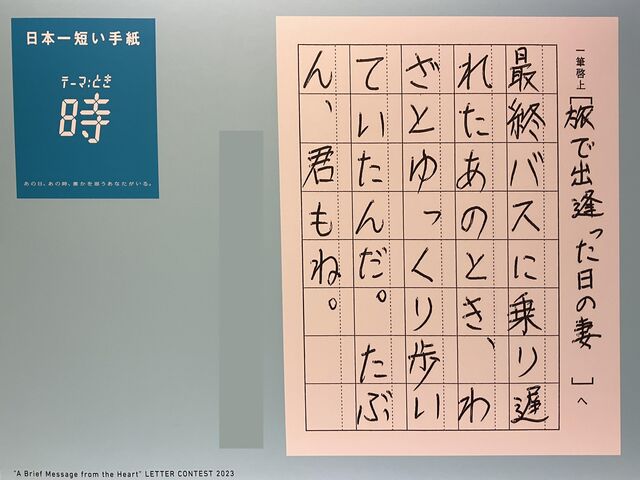 日本一短い手紙
テーマ:とき
時
あの日、あの時、誰かを思うあなたがいる。
一筆啓上［旅で出逢った日の妻］へ
最終バスに乗り遅
れたあのとき、わ
ざとゆっくり歩い
ていたんだ。たぶ
ん、君もね。
"A Brief Message from the Heart" LETTER CONTEST 2023